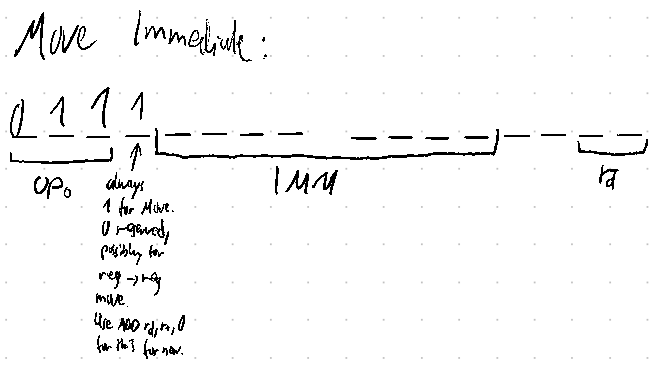 Move Immediate:
0 1 1 1
OP0
IMM
rd
always
1 for Move.
0 reserved,
possibly for
reg → reg
move.
Use ADD rd, rn, 0
for that for now.